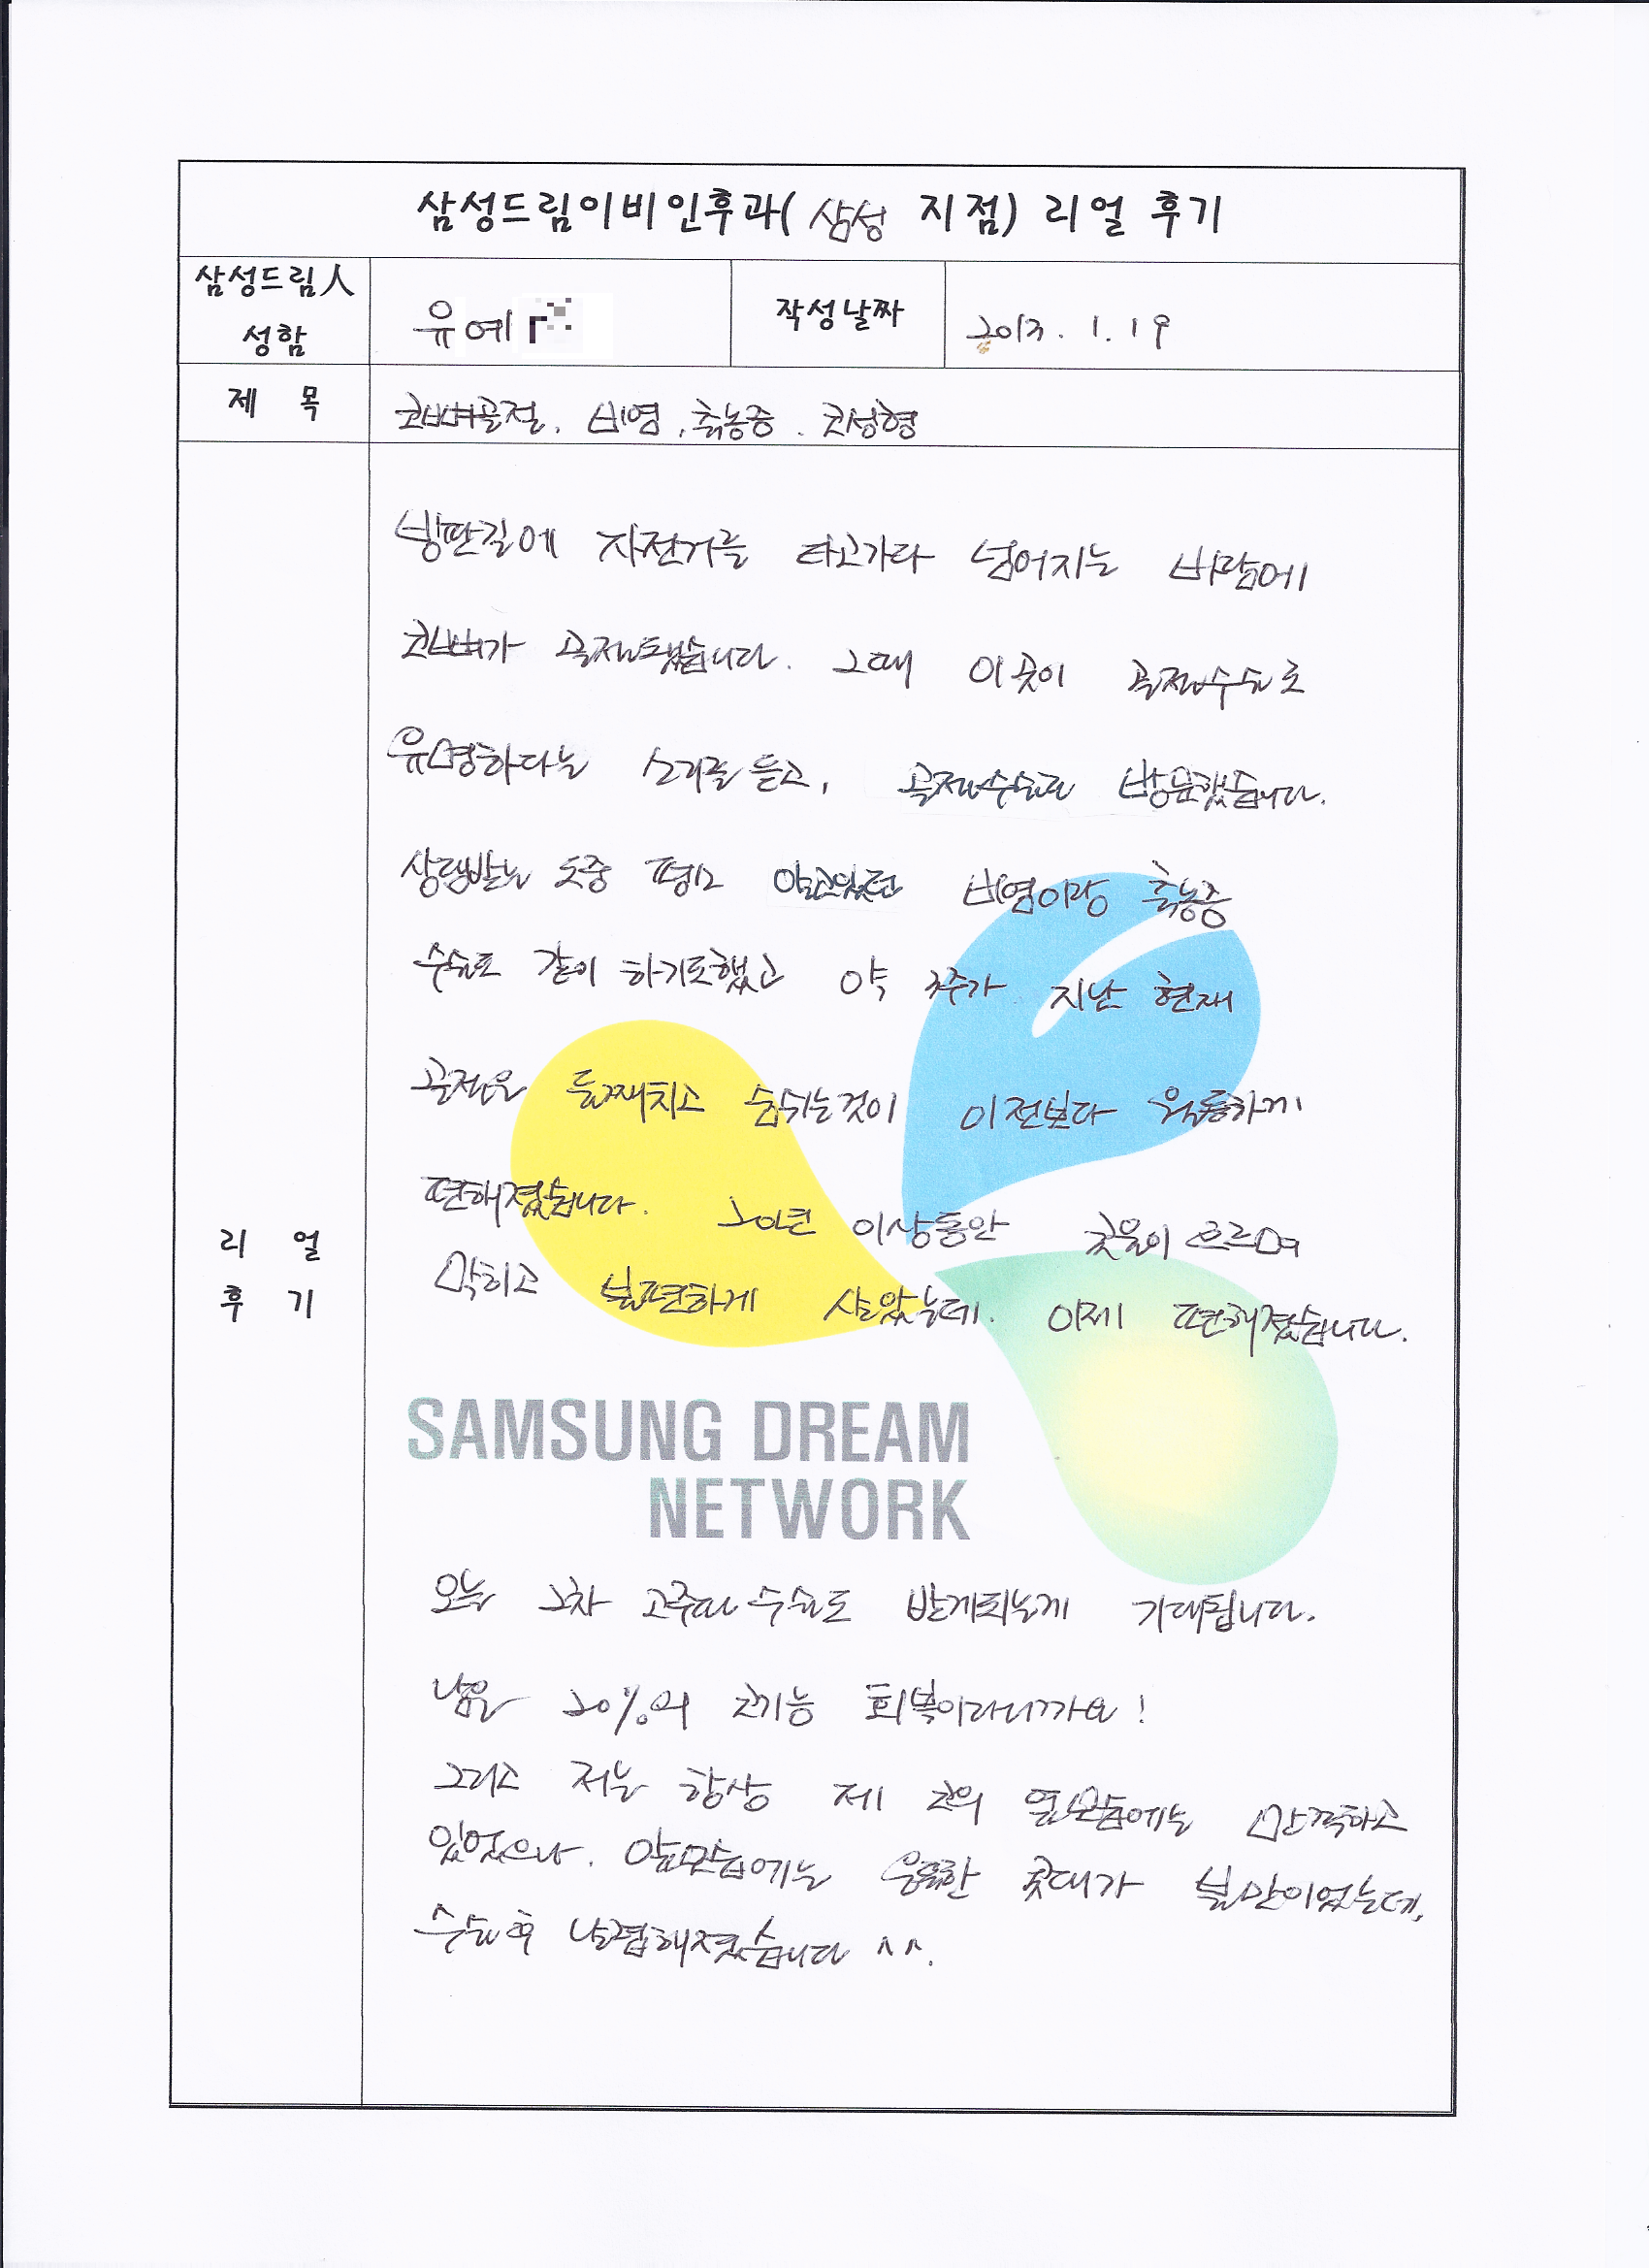 삼성드림이비인후과( 삼성 지점) 리얼 후기
삼성드림人 성함
유예
작성날짜
2013. 1. 19
제 목
코뼈골절. 비염, 축농증. 코성형
빙판길에 자전거를 타고가다 넘어지는 바람에
코뼈가 골절됐습니다. 그때 이곳이 골절수술로
유명하다는 소리를 듣고, 골절수술로 방문했습니다.
상담받는 도중 평소 앓고있던 비염이랑 축농증
수술도 같이 하기로했고 약 3주가 지난 현재
골절은 둘째치고 숨쉬는것이 이전보다 월등하게
편해졌습니다. 20년 이상동안 콧물이 흐르며
막히고 불편하게 살았는데. 이제 편해졌습니다.
리 얼
후 기
SAMSUNG DREAM
NETWORK
오늘 2차 고주파 수술도 받게되는게 기대됩니다.
남은 20%의 코기능 회복이라니까요!
그리고 저는 항상 제 코의 옆모습에는 만족하고
있었으나. 앞모습에는 뭉툭한 콧대가 불만이었는데,
수술후 날렵해졌습니다 ^^.